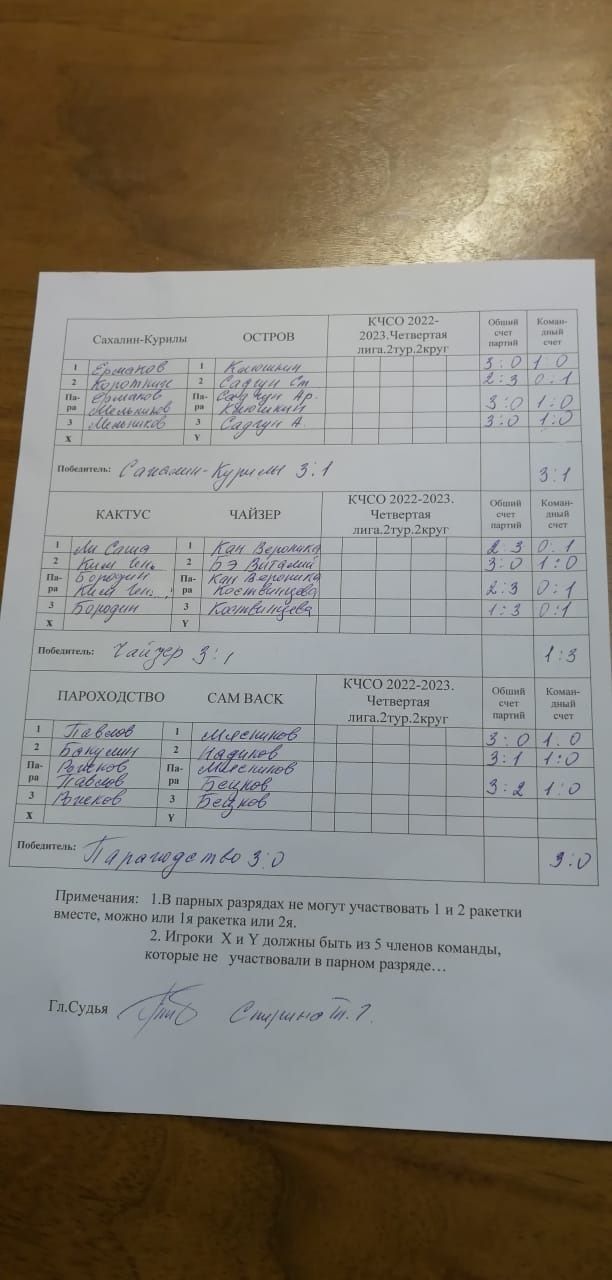 Сахалин-Курилы ОСТРОВ КЧСО 2022-2023.Четвертая лига.2тур.2круг Общий счет партий Коман-дный счет
1 Ермаков 1 Клюшкин 3:0 1:0
2 2 Садгун Ст 2:3 0:1
Па-ра Ермаков Па-ра Садгун Ар.
Мельников Клюшкин 3:0 1:0
3 Мельников 3 Садгун А 3:0 1:0
X Y
Победитель: Сахалин-Курилы 3:1 3:1
КАКТУС ЧАЙЗЕР КЧСО 2022-2023. Четвертая лига.2тур.2круг Общий счет партий Коман-дный счет
1 Ли Саша 1 Кан Вероника 2:3 0:1
2 Ким Ген. 2 БЭ Виталий 3:0 1:0
Па-ра Бородин Па-ра Кан Вероника
Ким Ген. 2:3 0:1
3 Бородин 3 1:3 0:1
X Y
Победитель: Чайзер 3:1 1:3
ПАРОХОДСТВО CAM BACK КЧСО 2022-2023. Четвертая лига.2тур.2круг Общий счет партий Коман-дный счет
1 Павлов 1 Мясников 3:0 1:0
2 Бакулин 2 3:1 1:0
Па-ра Па-ра Мясников
Павлов 3:2 1:0
3 3
X Y
Победитель: Пароходство 3:0 3:0
Примечания: 1.В парных разрядах не могут участвовать 1 и 2 ракетки
вместе, можно или 1я ракетка или 2я.
2. Игроки X и Y должны быть из 5 членов команды,
которые не участвовали в парном разряде…
Гл.Судья